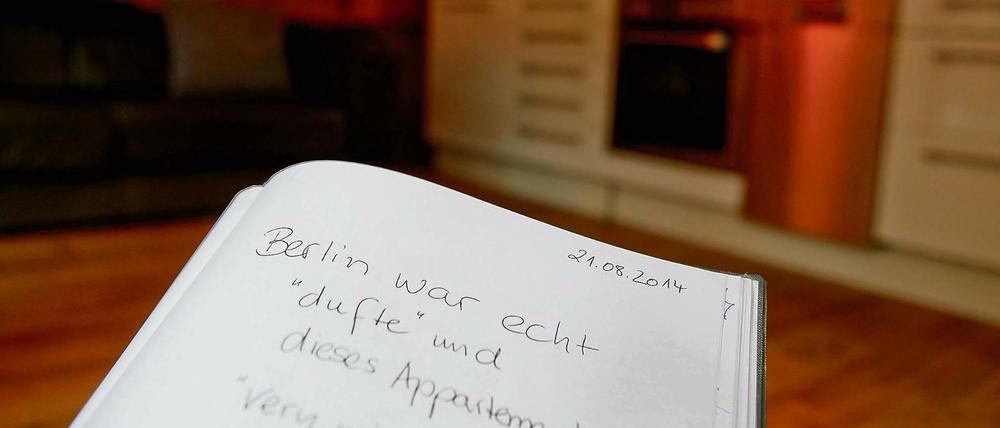 21.08.2014
Berlin war echt
"dufte" und
dieses Apparteme
"Very